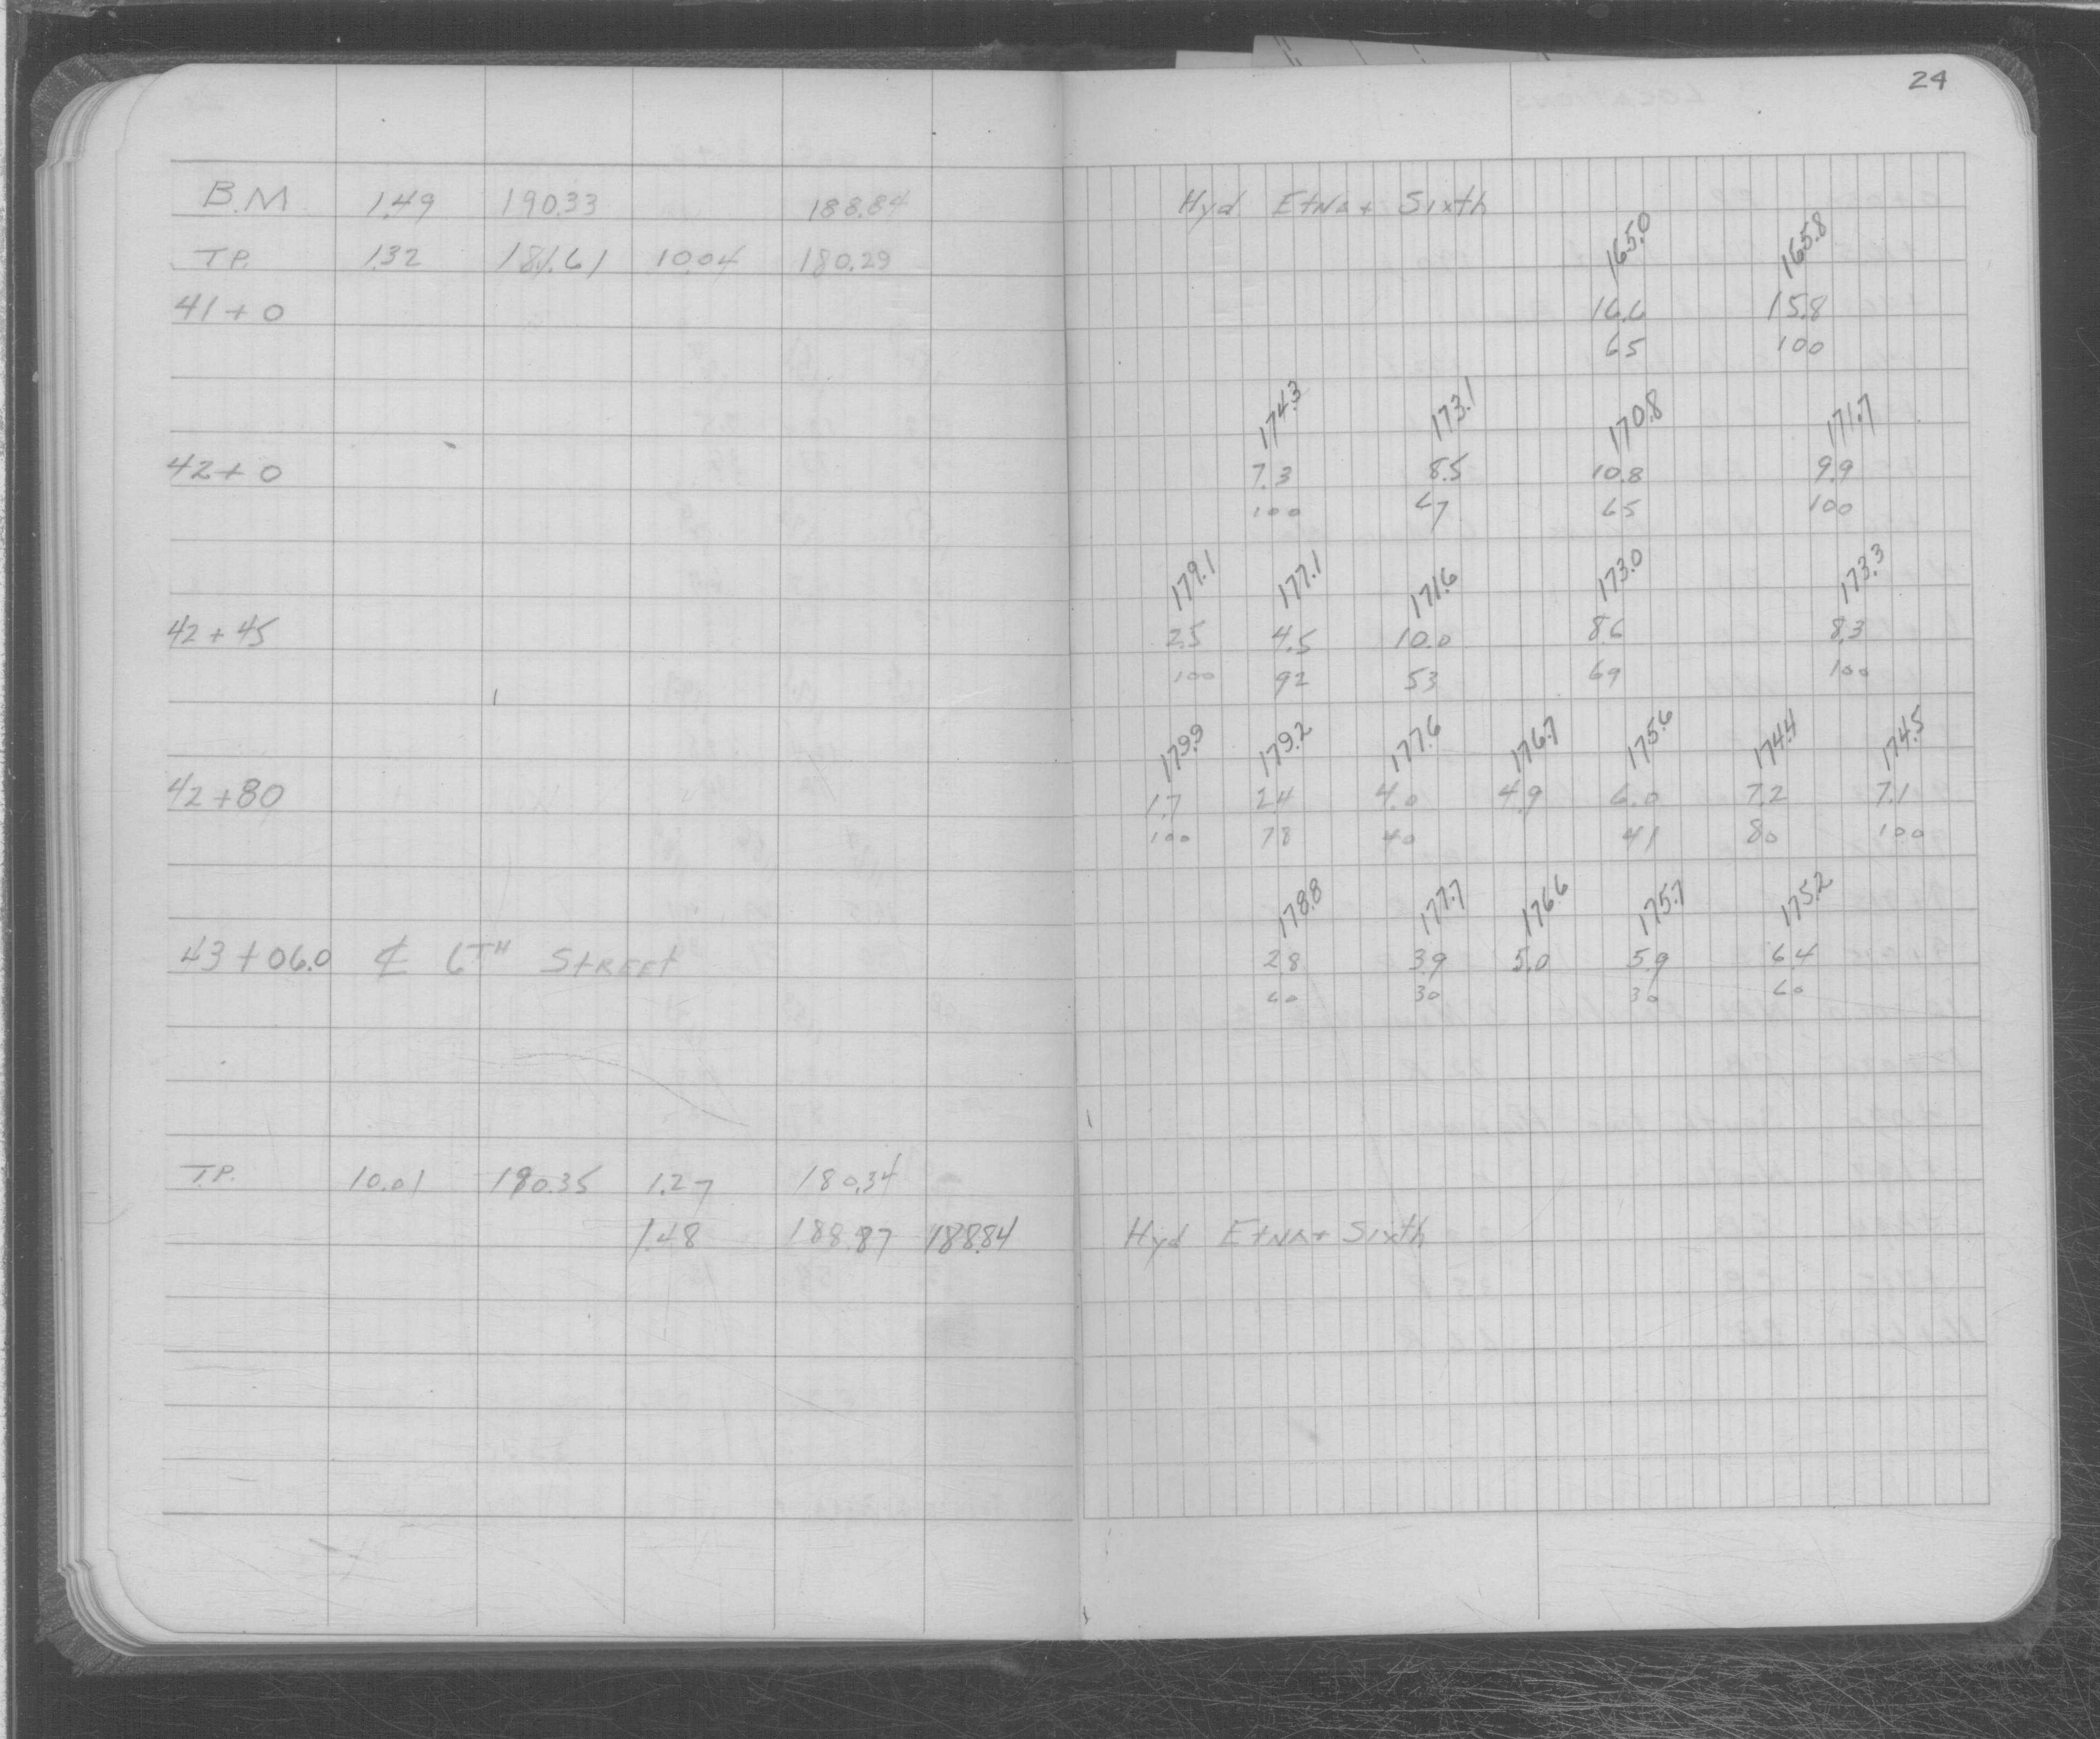 24
B.M 1.49 190.33 188.84 Hyd Etna + Sixth
T.P. 1.32 181.61 10.04 180.29
165.0 165.8
41+0 16.6 15.8
65 100
174.3 173.1 170.8 171.7
42+0 7.3 8.5 10.8 9.9
100 67 65 100
179.1 177.1 171.6 173.0 173.3
42+45 2.5 4.5 10.0 8.6 8.3
100 92 53 69 100
179.9 179.2 177.6 176.7 175.6 174.4 174.5
42+80 1.7 2.4 4.0 4.9 6.0 7.2 7.1
100 78 40 41 80 100
178.8 177.7 176.6 175.7 175.2
43+06.0 ℄ 6TH STREET 2.8 3.9 5.0 5.9 6.4
60 30 30 60
T.P. 10.01 190.35 1.27 180.34
1.48 188.87 188.84 Hyd Etna + Sixth